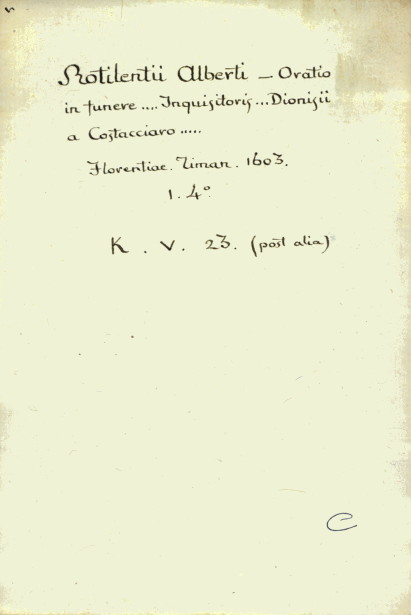 Rotilentii Alberti – Oratio
in funere .... Inquisitoris ... Dionisii
a Costacciaro .....
Florentiae. Timan. 1603.
1. 4°
K. V. 23. (post alia)
C